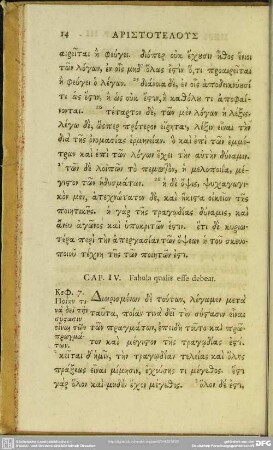 14 ΑΡΙΣΤΟΤΕΛΟΥΣ
αιρεῖται ἢ φεύγει. διόπερ οὐκ ἔχουσιν ἦθος ἔνιοι
τῶν λόγων, ἐν οἷς μηδ' ὅλως ἐστὶν ὅ,τι προαιρεῖται
ἢ φεύγει ὁ λέγων. διάνοια δὲ, ἐν οἷς ἀποδεικνύουσί
τι ὡς ἔστιν, ἢ ὡς οὐκ ἔστιν, ἢ καθόλου τι ἀποφαί-
νονται. τέταρτον δὲ, τῶν μὲν λόγων ἡ λέξις.
λέγω δὲ, ὥσπερ πρότερον εἴρηται, λέξιν εἶναι τὴν
διὰ τῆς ὀνομασίας ἑρμηνείαν. ὃ καὶ ἐπὶ τῶν ἐμμέ-
τρων καὶ ἐπὶ τῶν λόγων ἔχει τὴν αὐτὴν δύναμιν.
τῶν δὲ λοιπῶν τὸ πέμπτον, ἡ μελοποιία, μέ-
γιστον τῶν ἡδυσμάτων. ἡ δὲ ὄψις, ψυχαγωγι-
κὸν μὲν, ἀτεχνότατον δὲ, καὶ ἥκιστα οἰκεῖον τῆς
ποιητικῆς. ἡ γὰρ τῆς τραγῳδίας δύναμις, καὶ
ἄνευ ἀγῶνος καὶ ὑποκριτῶν ἐστίν. ἔτι δὲ κυριω-
τέρα περὶ τὴν ἀπεργασίαν τῶν ὄψεων ἡ τοῦ σκευο-
ποιοῦ τέχνη τῆς τῶν ποιητῶν ἐστι.
CAP. IV. Fabula qualis esse debeat.
Κεφ. ζ.
Ποίαν τι-
νὰ δεῖ τὴν
σύστασιν
εἶναι τῶν
πραγμά-
των.
Διωρισμένων δὲ τούτων, λέγωμεν μετὰ
ταῦτα, ποίαν τινὰ δεῖ τὴν σύστασιν εἶναι
τῶν πραγμάτων, ἐπειδὴ τοῦτο καὶ πρῶ-
τον καὶ μέγιστον τῆς τραγῳδίας ἐστί.
κεῖται δ' ἡμῖν, τὴν τραγῳδίαν τελείας καὶ ὅλης
πράξεως εἶναι μίμησιν, ἐχούσης τι μέγεθος. ἔστι
γὰρ ὅλον καὶ μηδὲν ἔχον μέγεθος. ὅλον δέ ἐστι,